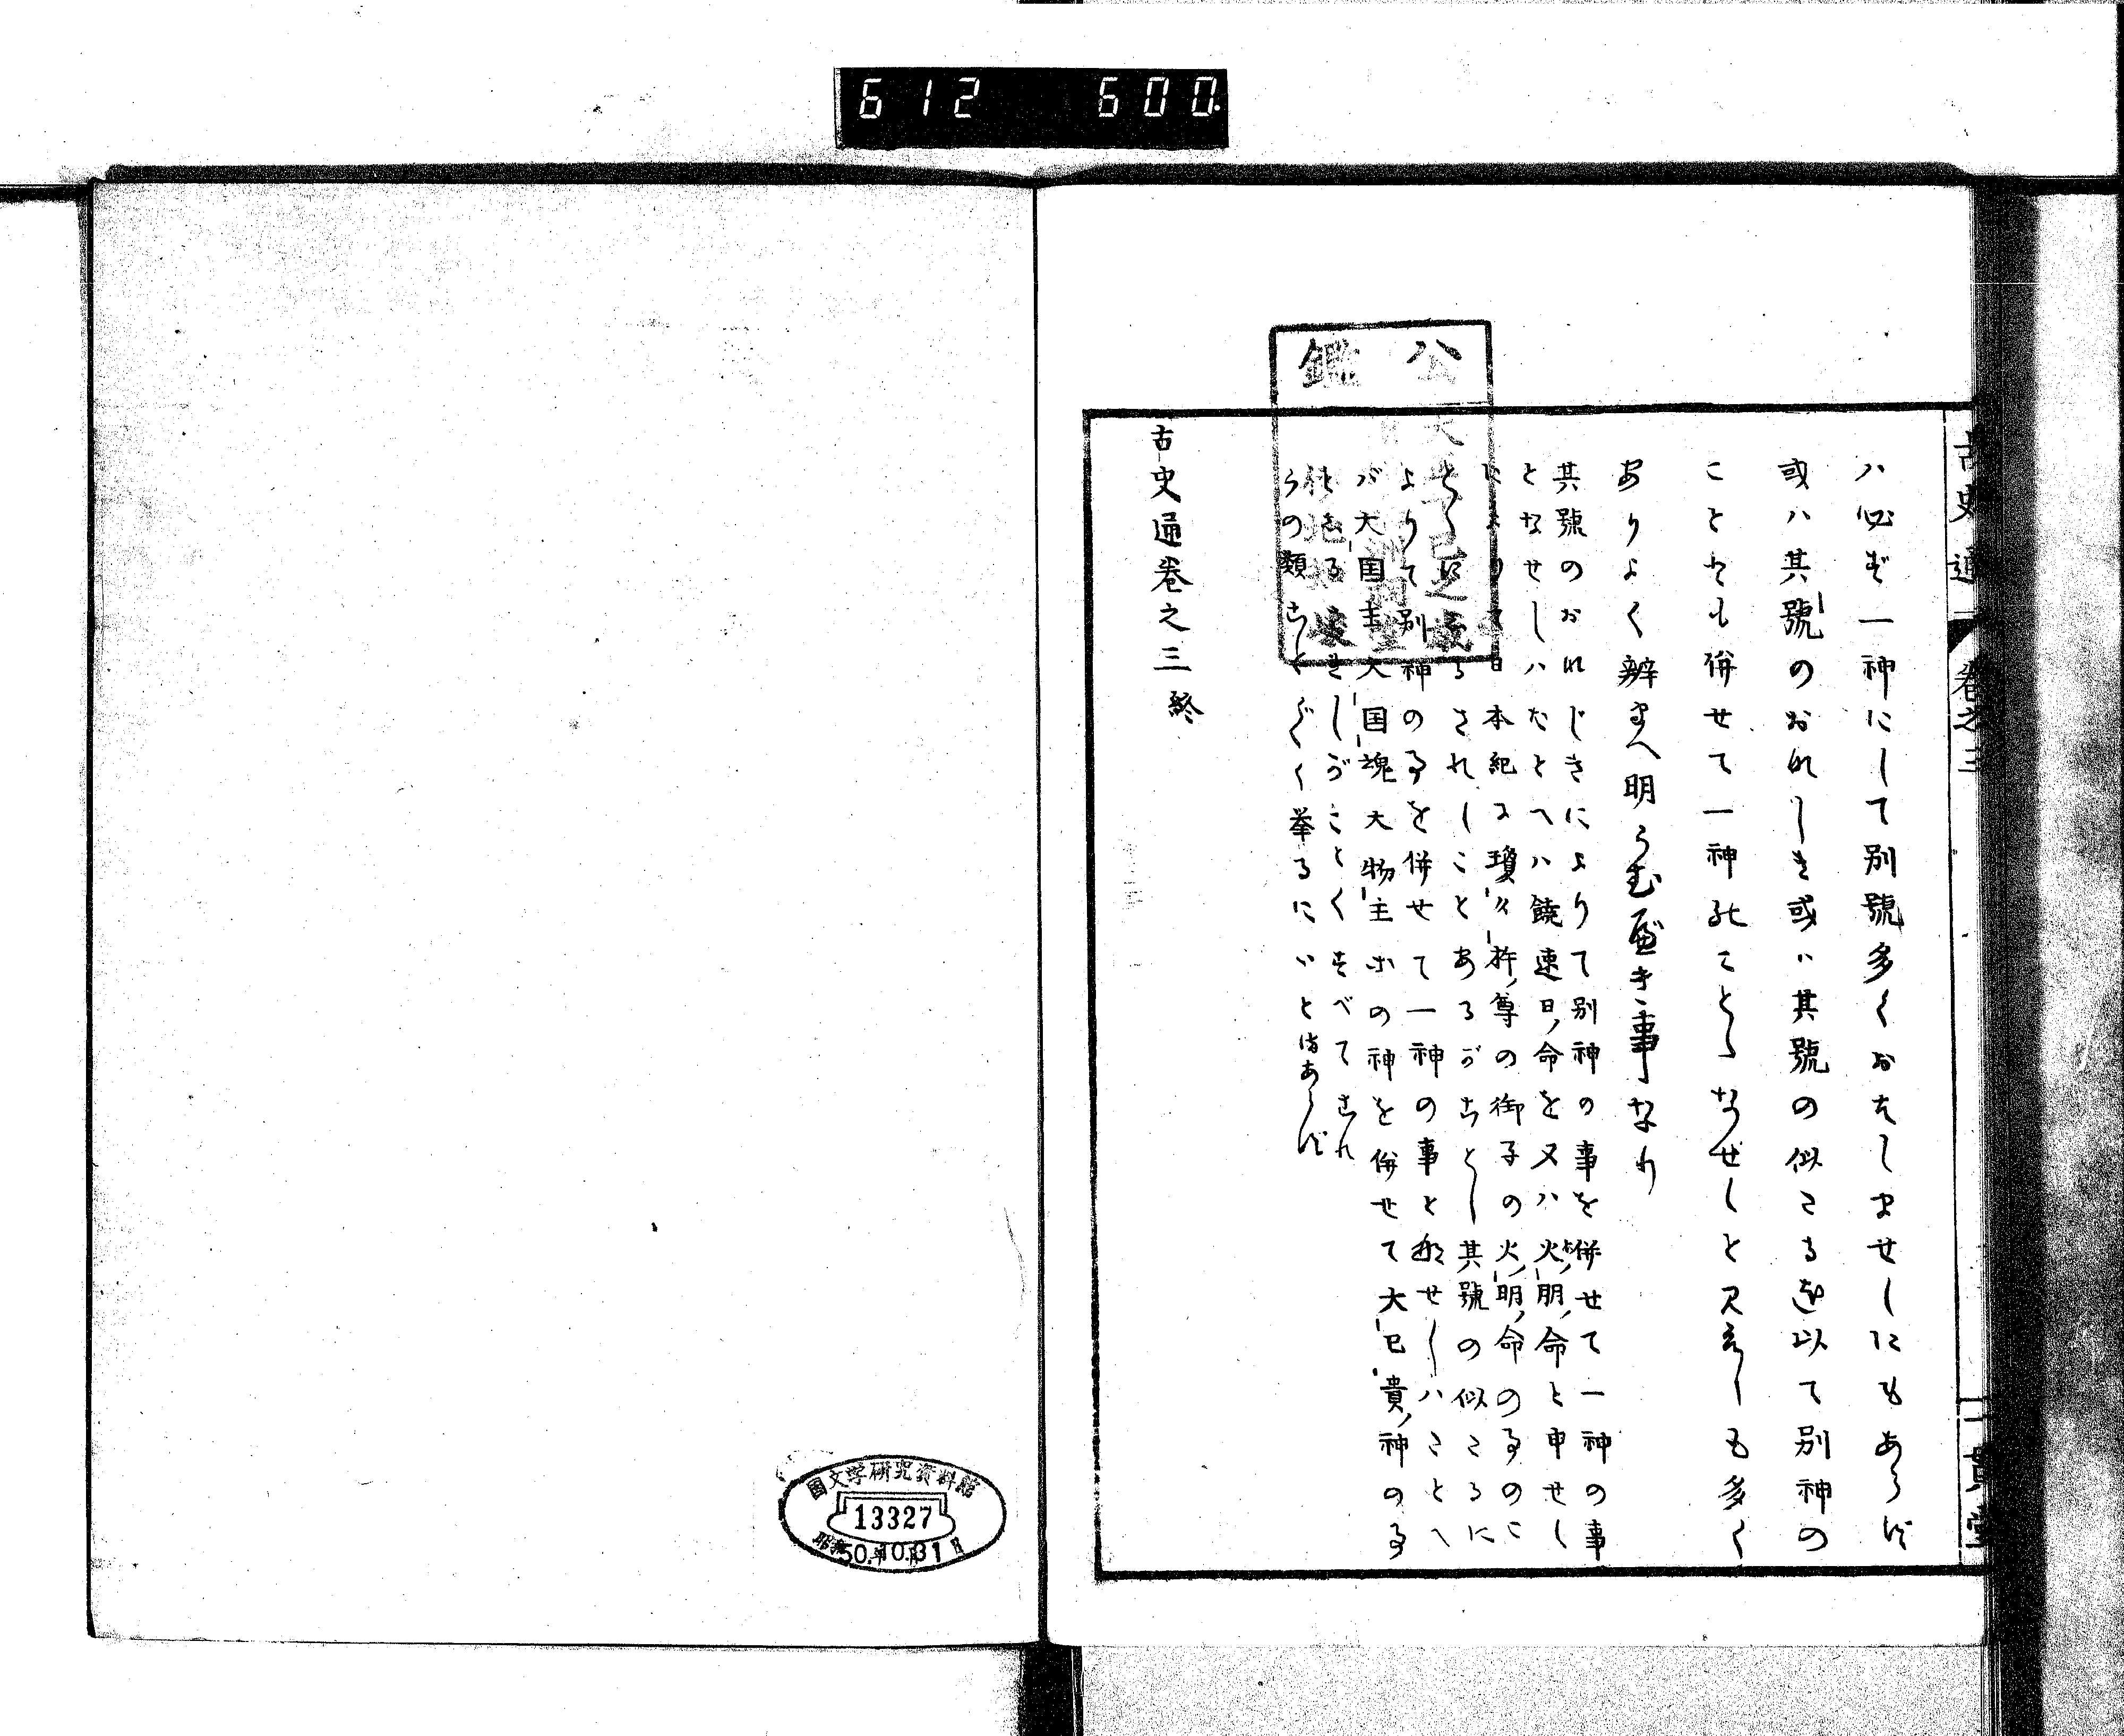 612 600.
古史通
巻之三
ハ必ず一神にして別號多くおはしませしにもあらず
或ハ其號のおなじき或ハ其號の似たるを以て別神の
ことをも併せて一神のことゝなせしと見えしも多く
ありよく辨まへ明らむべき事なり
其號のおなじきによりて別神の事を併せて一神の事
となせしハたとへハ饒速日命を又ハ火明命と申せし
によりて日本紀に瓊々杵尊の御子の火明命の事のこ
とゝしるされしことあるがごとし其號の似たるに
よりて別神の事を併せて一神の事となせしハたとへ
バ大国主大国魂大物主等の神を併せて大己貴神の事
としるせしがごとくすべてこれ
らの類ことごとく挙るにいとまあらず
古史通巻之三終
公鑑
国文学研究資料館
13327
昭和50年10月31日